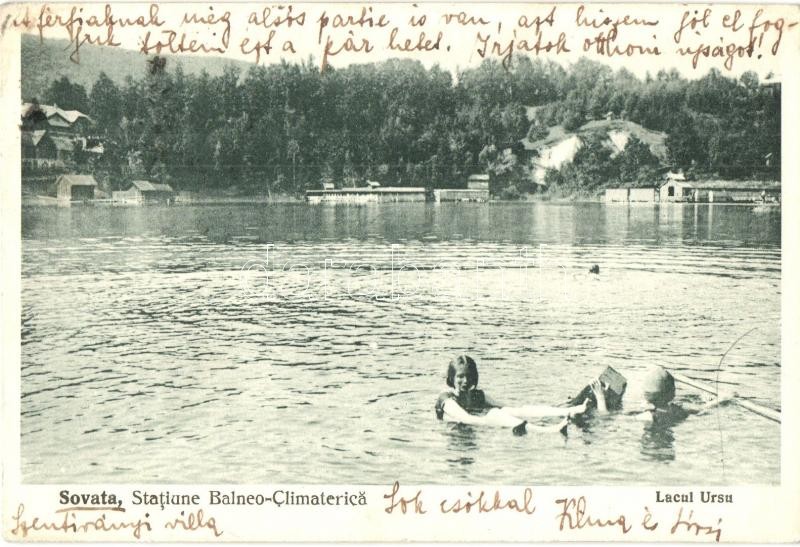 A férfiaknak még alsós partie is van, azt hiszem jól el fog-
juk tölteni ezt a pár hetet. Irjatok otthoni ujságot!
darabanth
Sovata, Stațiune Balneo-Çlimaterică
Lacul Ursu
Sok csókkal
Szentiványi villa
Klma és Jirzi